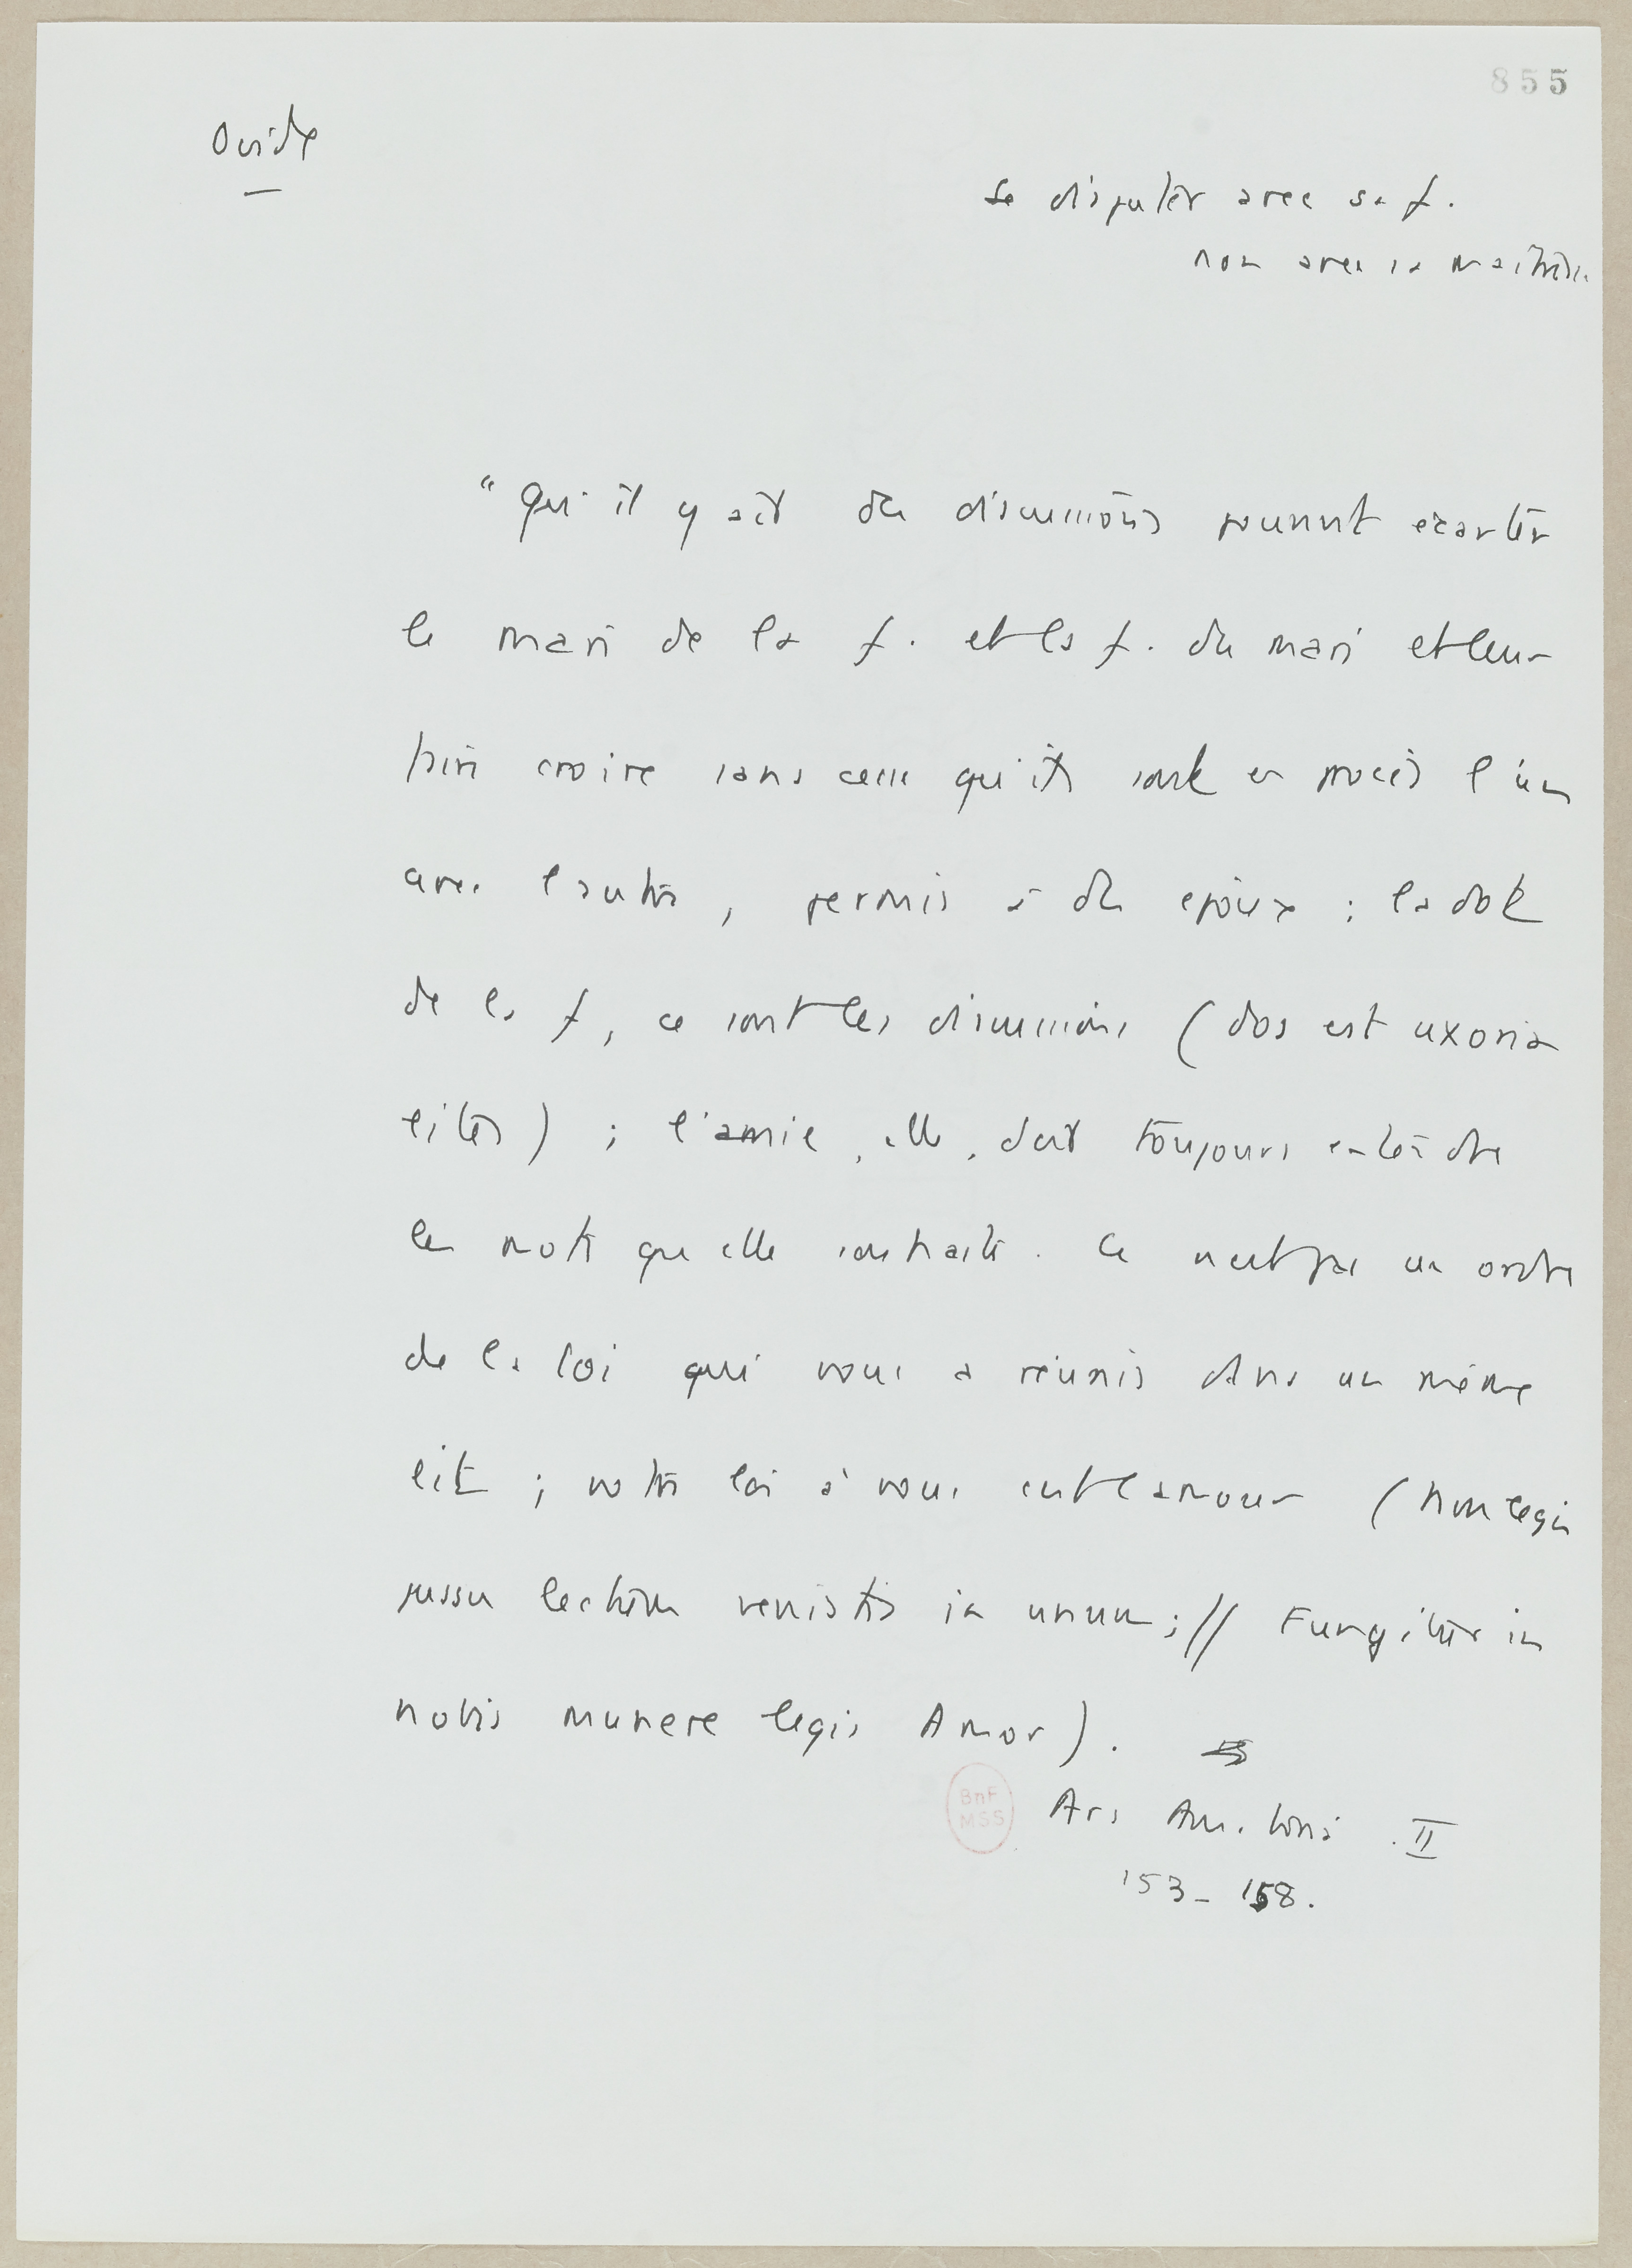 855
Ovide
Se disputer avec sa f.
non avec sa maîtresse
"Qu'il y ait des discussions pouvant écarter
le mari de la f. et la f. du mari et leur
faire croire sans cesse qu'ils sont en procès l'un
avec l'autre, permis à des époux ; la dot
de la f, ce sont les discussions (dos est uxoria
lites) ; l'amie, elle, doit toujours entendre
les mots qu'elle souhaite. Ce n'est pas un ordre
de la loi qui vous a réunis dans un même
lit ; votre loi à vous c'est l'amour (Non legis
jussu lectum venistis in unum ; // Fungitur in
nobis munere legis Amor).
Ars Am. II
153 - 158.
BnF
MSS